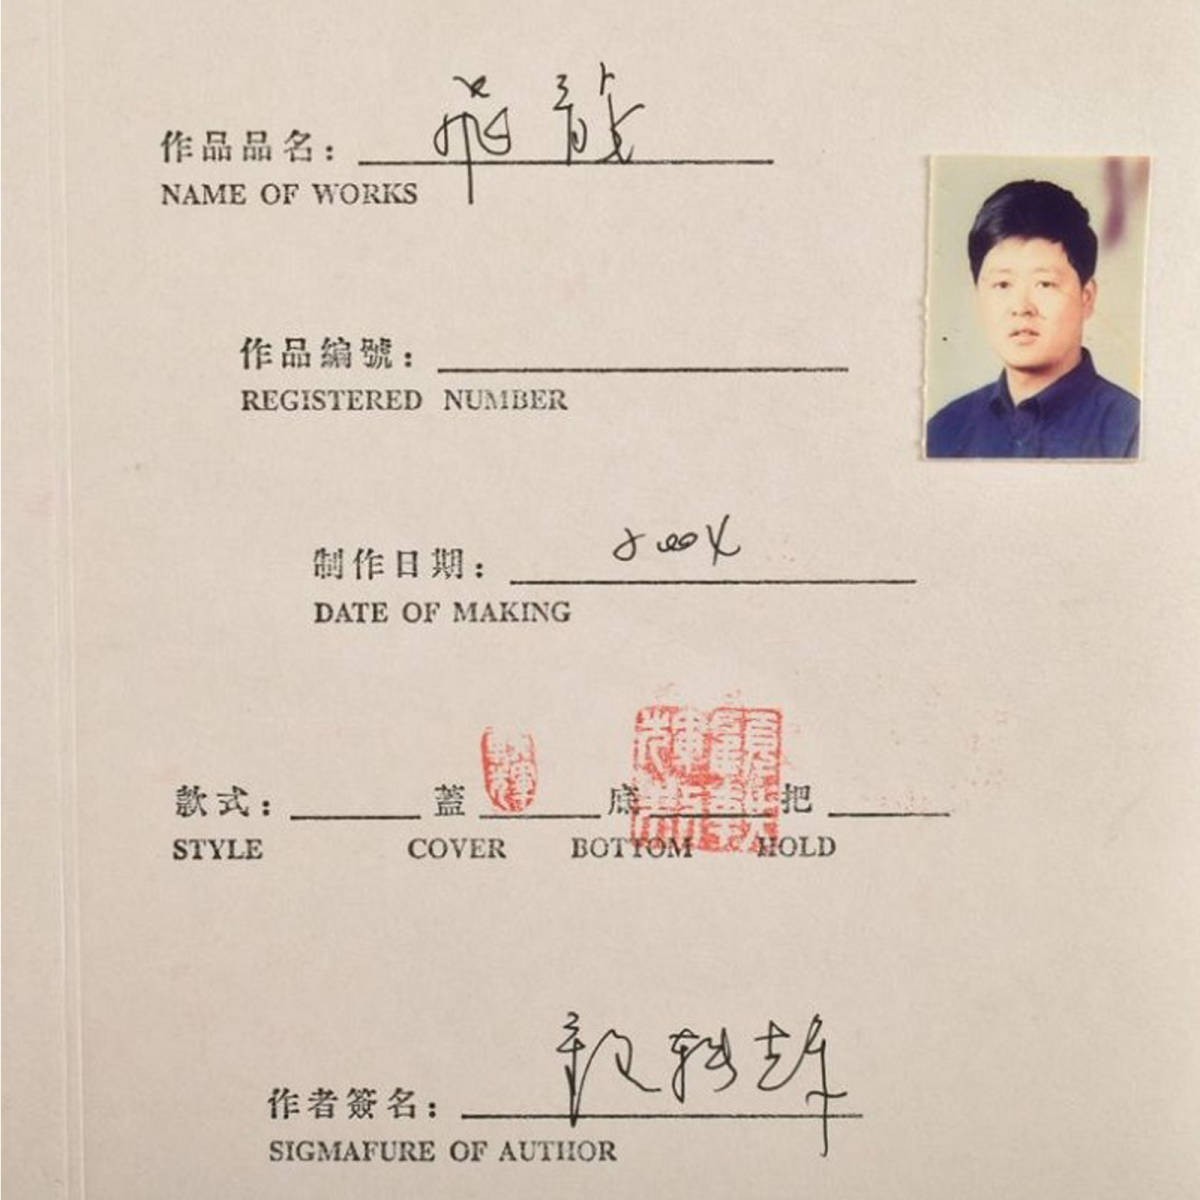 作品品名： 飛龍
NAME OF WORKS
作品編號：
REGISTERED NUMBER
制作日期： 2004
DATE OF MAKING
款式： 蓋 底 把
STYLE COVER BOTTOM HOLD
作者簽名：
SIGMAFURE OF AUTHOR